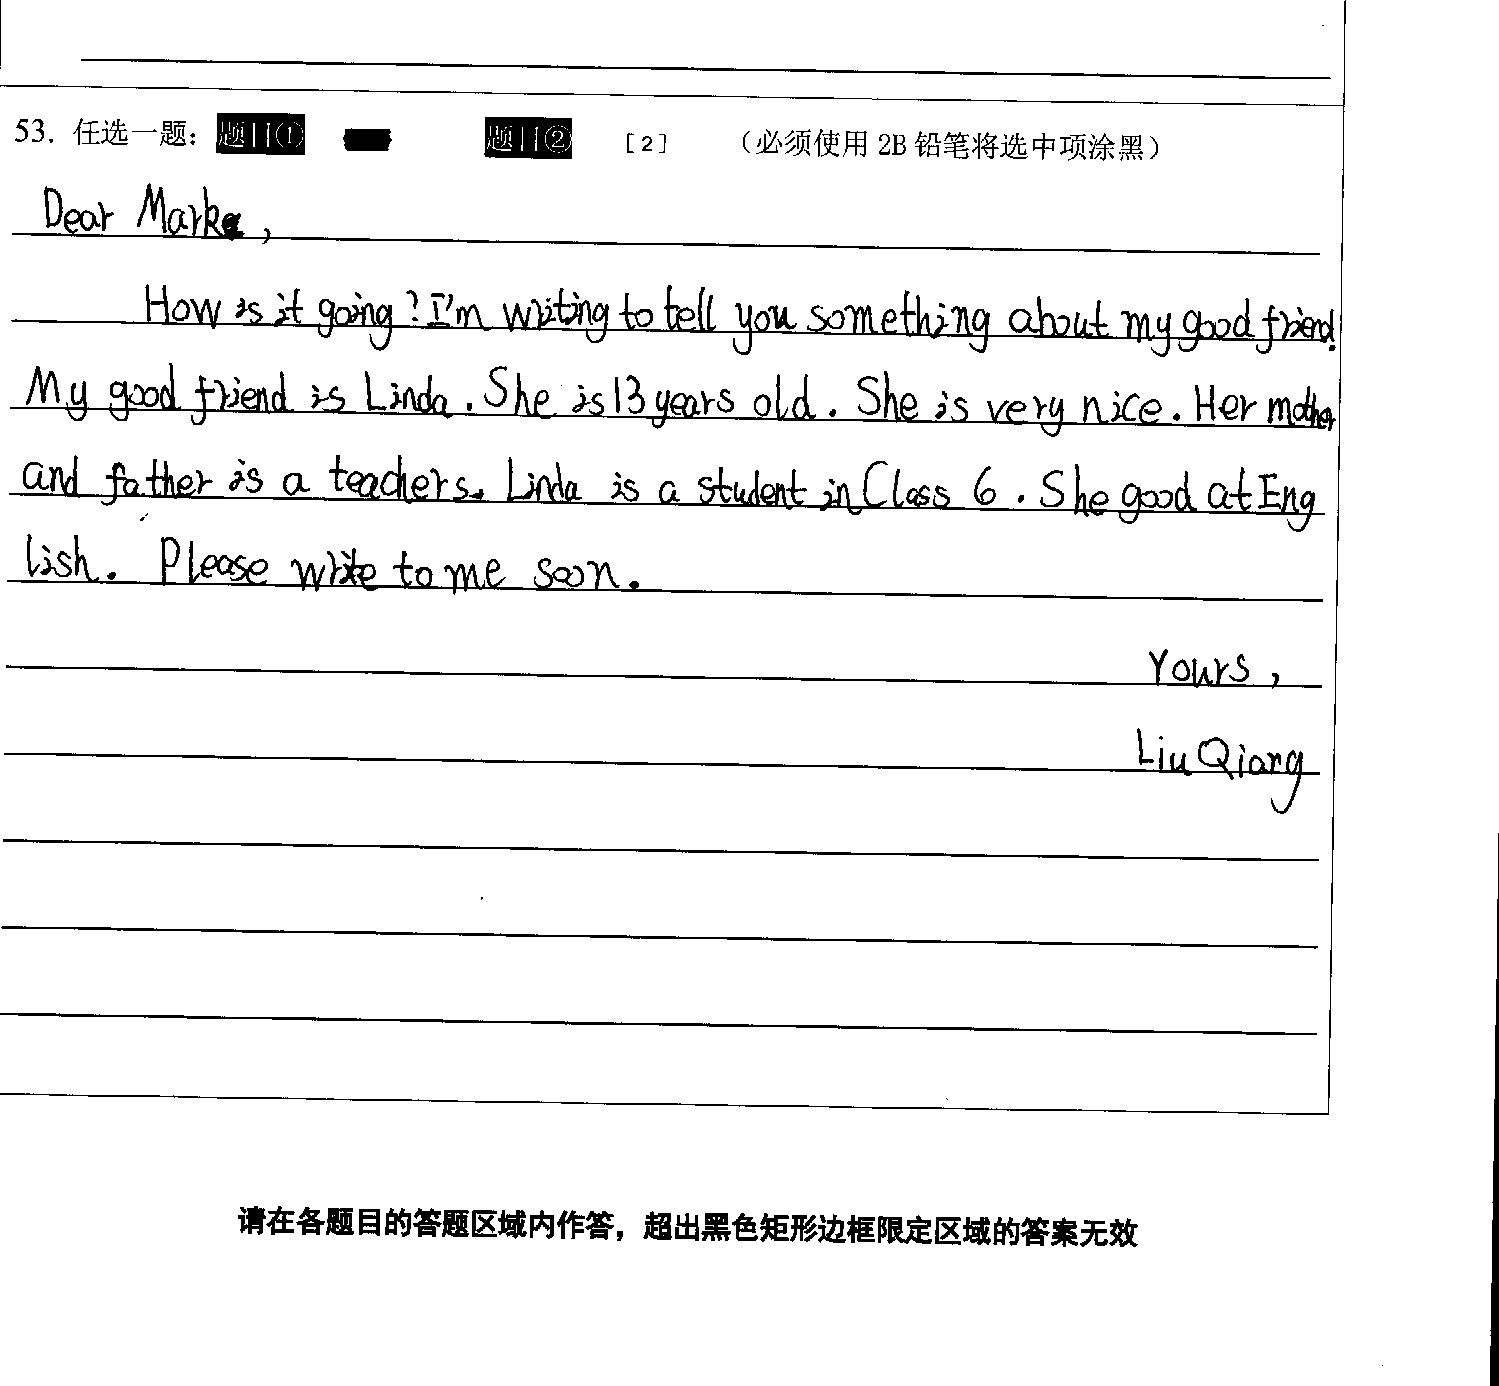 53. 任选一题: 题目① 题目② [2] (必须使用 2B 铅笔将选中项涂黑)
Dear Mark,
How is it going? I'm writing to tell you something about my good friend.
My good friend is Linda. She is 13 years old. She is very nice. Her mother
and father is a teachers. Linda is a student in Class 6. She good at Eng
lish. Please write to me soon.
Yours,
Liu Qiang
请在各题目的答题区域内作答，超出黑色矩形边框限定区域的答案无效